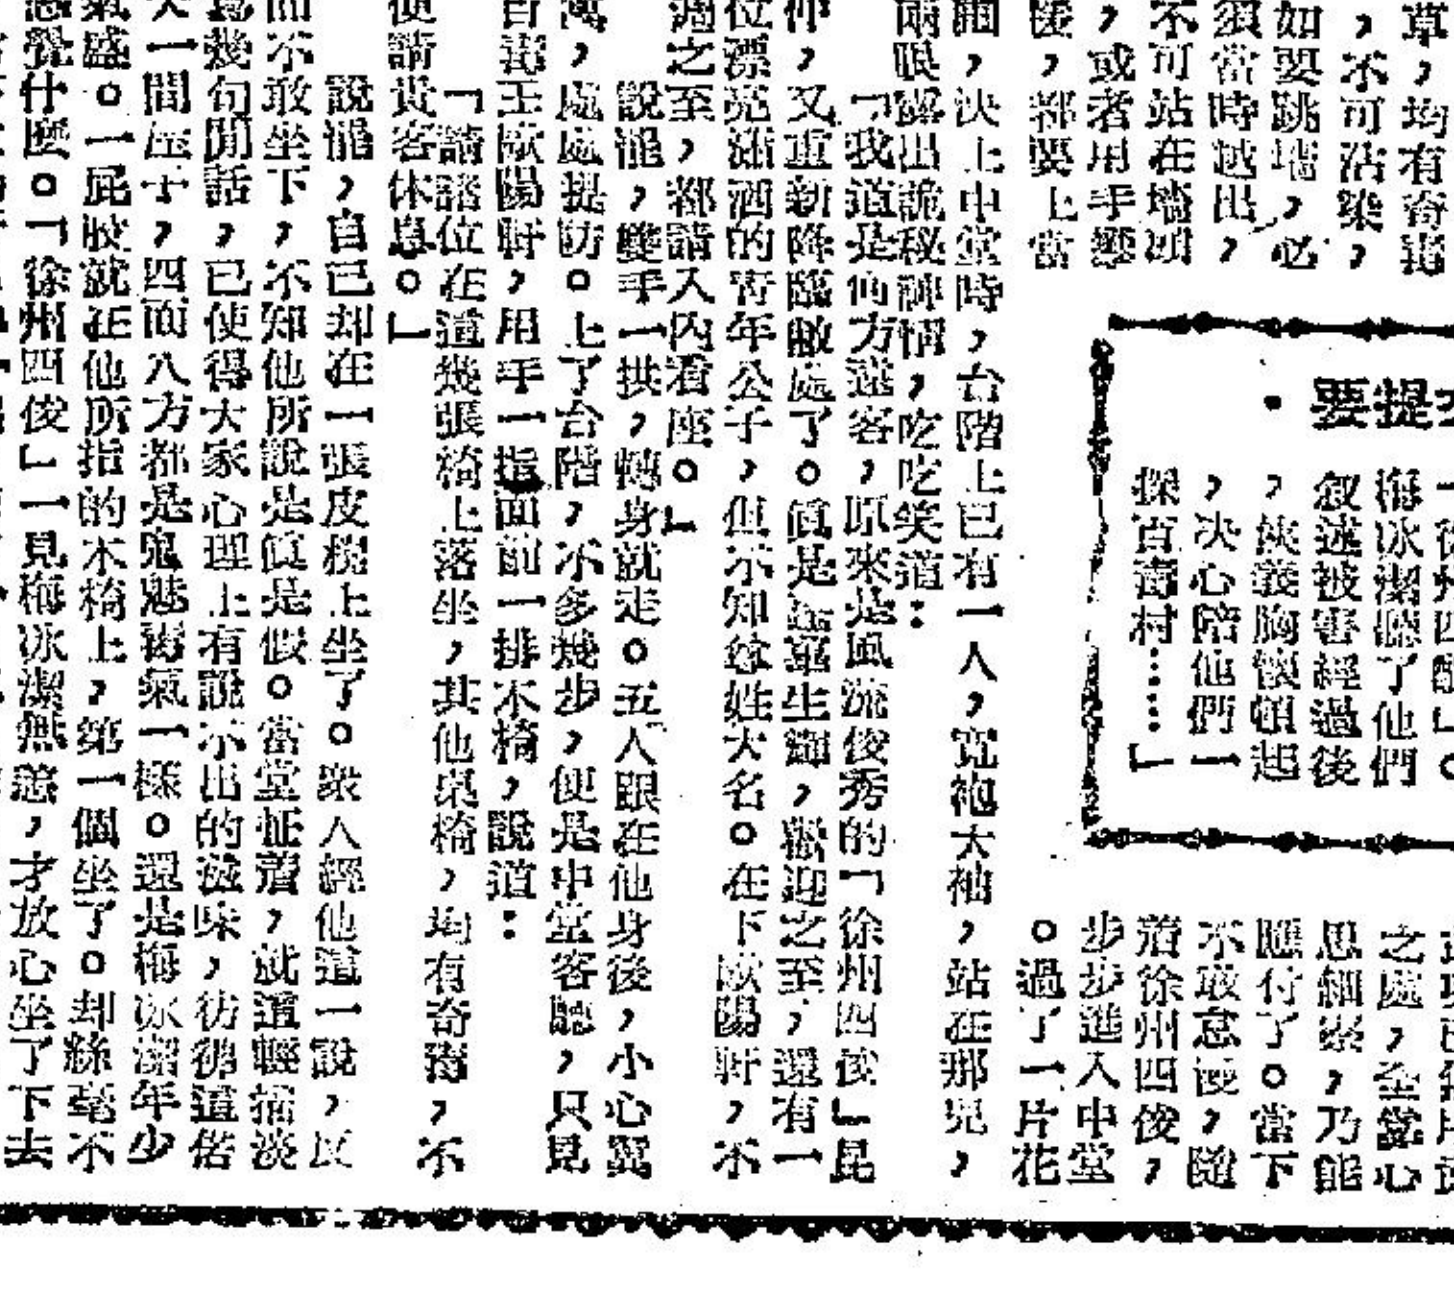 草，均有奇毒
，不可沾染，
如要跳墻，必
須當時越出，
不可站在墻頭
，或者用手攀
援，都要上當
提要
梅冰潔隊了他們
叙述被害經過後
，俠義胸懷頓起
，决心陪他們一
探百毒村……」
之處，全當心
思細察，乃能
應付了。當下
不敢怠慢，隨
着徐州四俊，
步步進入中堂
。過了一片花
圃，决上中堂時，台階上已有一人，寬袍大袖，站在那兒，
兩眼露出詭秘神情，吃吃笑道：
「我道是何方遠客，原來是風流俊秀的「徐州四俊」昆
仲，又重新降臨敝處了。眞是蓬蓽生輝，歡迎之至，還有一
位漂亮瀟洒的青年公子，但不知尊姓大名。在下歐陽軒，不
過之至，都請入內看座。」
說罷，雙手一拱，轉身就走。五人跟在他身後，小心翼
處處提防。上了台階，不多幾步，便是中堂客廳，只見
百毒王歐陽軒，用手一指面前一排木椅，說道：
「請諸位在這幾張椅上落坐，其他桌椅，均有奇毒，不
便請貴客休息。」
說罷，自己却在一張皮櫈上坐了。衆人經他這一說，反
而不敢坐下，不知他所說是眞是假。當堂怔着，就這輕描淡
寫幾句閒話，已使得大家心理上有說不出的滋味，彷彿這偌
大一間屋子，四面八方都是鬼魅毒氣一樣。還是梅冰潔年少
氣盛。一屁股就在他所指的木椅上，第一個坐了。却絲毫不
感覺什麼。「徐州四俊」一見梅冰潔無恙，才放心坐了下去